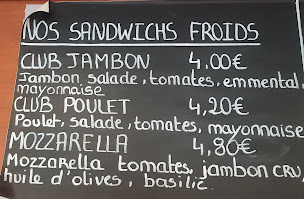 NOS SANDWICHS FROIDS
CLUB JAMBON 4.00€
Jambon salade, tomates, emmental,
mayonnaise
CLUB POULET 4,20€
Poulet, salade, tomates, mayonnaise
MOZZARELLA 4,80€
Mozzarella tomates, jambon CRU,
huile d'olives, basilic.